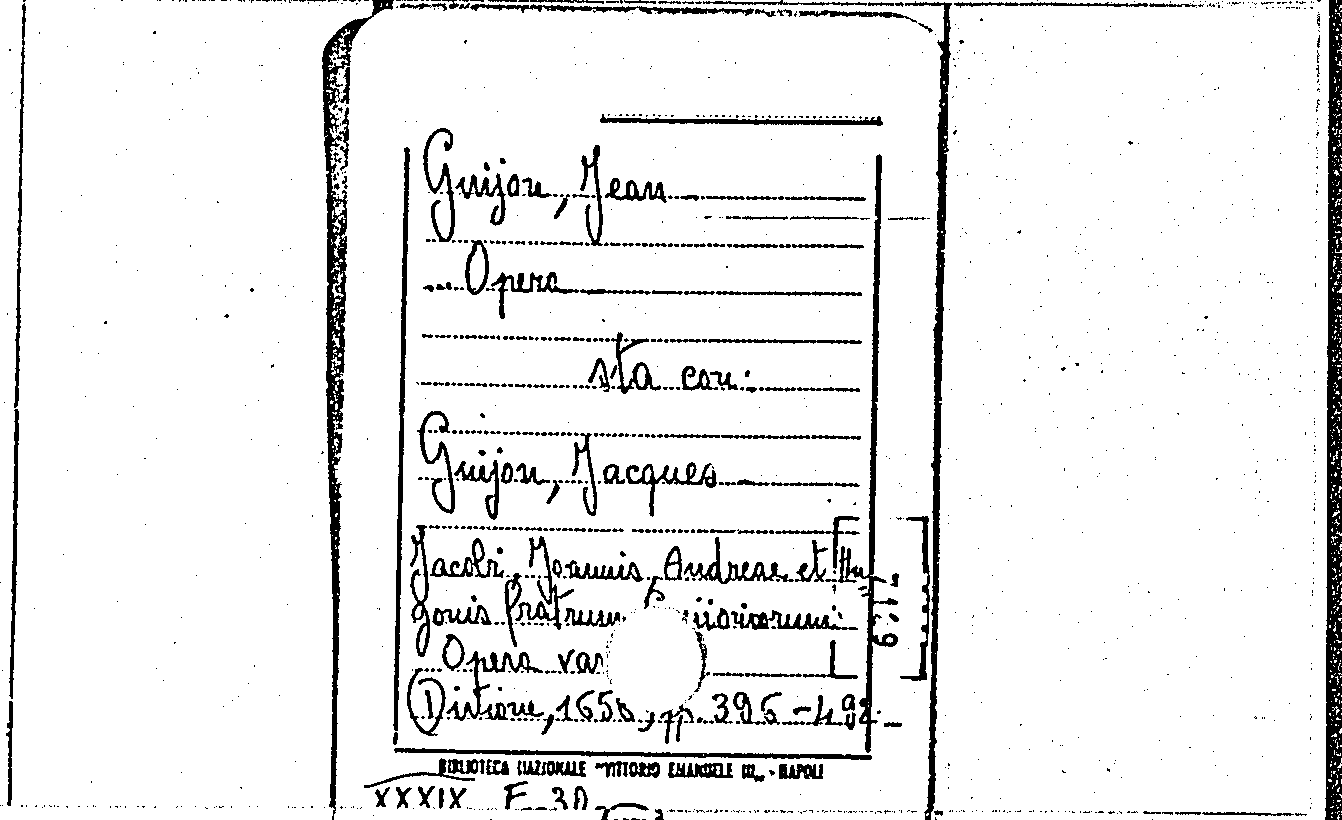 Guijon, Jean
... Opera
sta con:
Guijon, Jacques
Jacobi, Joannis, Andreae et Hu=
gonis fratrum
Opera var
Divione, 1658, pp. 395-492.
BIBLIOTECA NAZIONALE "VITTORIO EMANUELE III" - NAPOLI
XXXIX F 30